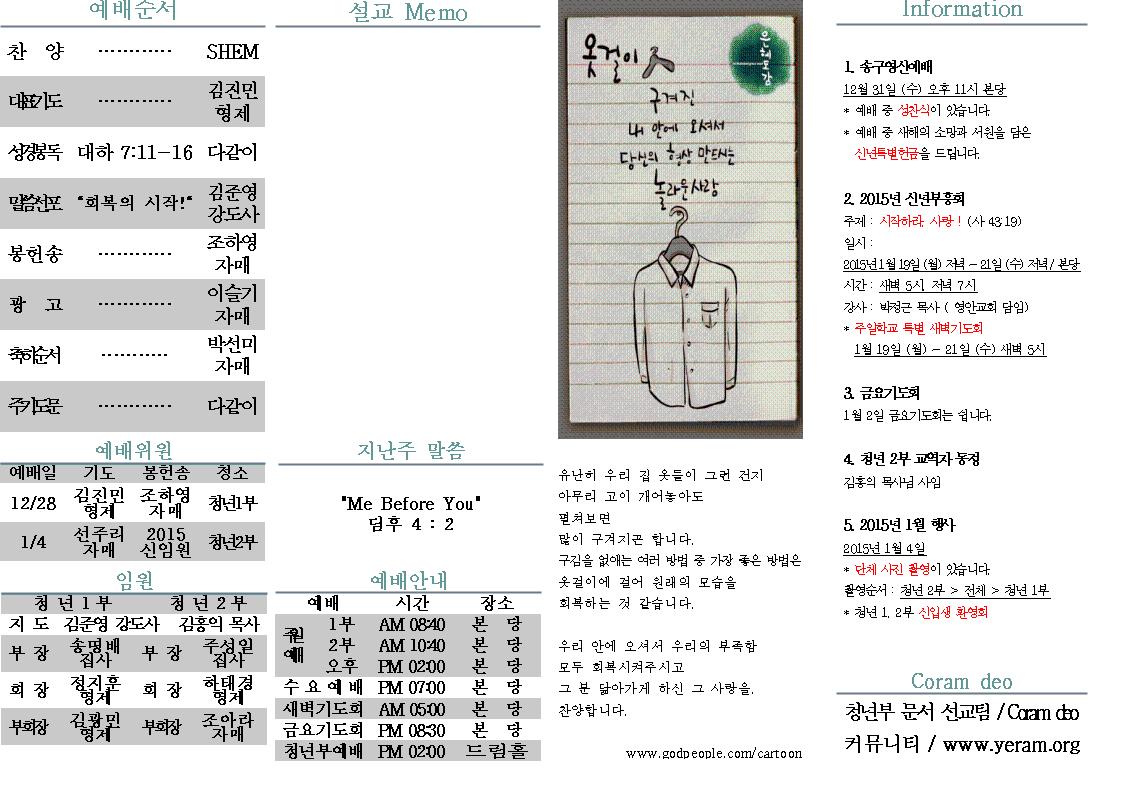 예배순서
찬 양 ············ SHEM
대표기도 ············ 김진민 형제
성경봉독 대하 7:11-16 다같이
말씀선포 "회복의 시작!" 김준영 강도사
봉헌송 ············ 조하영 자매
광 고 ············ 이슬기 자매
축하순서 ··········· 박선미 자매
주기도문 ············ 다같이
예배위원
예배일 기도 봉헌송 청소
12/28 김진민 형제 조하영 자매 청년1부
1/4 선주리 자매 2015 신임원 청년2부
임원
청 년 1 부 청 년 2 부
지 도 김준영 강도사 김홍익 목사
부 장 송명배 집사 부 장 주성일 집사
회 장 정지훈 형제 회 장 하태경 형제
부회장 김광민 형제 부회장 조아라 자매
설교 Memo
지난주 말씀
"Me Before You"
딤후 4 : 2
예배안내
예배 시간 장소
주일예배 1부 AM 08:40 본 당
2부 AM 10:40 본 당
오후 PM 02:00 본 당
수 요 예 배 PM 07:00 본 당
새벽기도회 AM 05:00 본 당
금요기도회 PM 08:30 본 당
청년부예배 PM 02:00 드림홀
옷걸이
은혜도감
구겨진
내 안에 오셔서
당신의 형상 만드시는
놀라운 사랑
유난히 우리 집 옷들이 그런 건지
아무리 고이 개어놓아도
펼쳐보면
많이 구겨지곤 합니다.
구김을 없애는 여러 방법 중 가장 좋은 방법은
옷걸이에 걸어 원래의 모습을
회복하는 것 같습니다.
우리 안에 오셔서 우리의 부족함
모두 회복시켜주시고
그 분 닮아가게 하신 그 사랑을,
찬양합니다.
www.godpeople.com/cartoon
Information
1. 송구영신예배
12월 31일 (수) 오후 11시 본당
* 예배 중 성찬식이 있습니다.
* 예배 중 새해의 소망과 서원을 담은
신년특별헌금을 드립니다.
2. 2015년 신년부흥회
주제 : 시작하라, 사랑 ! (사 43:19)
일시 :
2015년 1월 19일 (월) 저녁 - 21일 (수) 저녁 / 본당
시간 : 새벽 5시, 저녁 7시
강사 : 박정근 목사 ( 영안교회 담임)
* 주일학교 특별 새벽기도회
1월 19일 (월) - 21일 (수) 새벽 5시
3. 금요기도회
1월 2일 금요기도회는 쉽니다.
4. 청년 2부 교역자 동정
김홍익 목사님 사임
5. 2015년 1월 행사
2015년 1월 4일
* 단체 사진 촬영이 있습니다.
촬영순서 : 청년 2부 > 전체 > 청년 1부
* 청년 1, 2부 신입생 환영회
Coram deo
청년부 문서 선교팀 / Coram deo
커뮤니티 / www.yeram.org